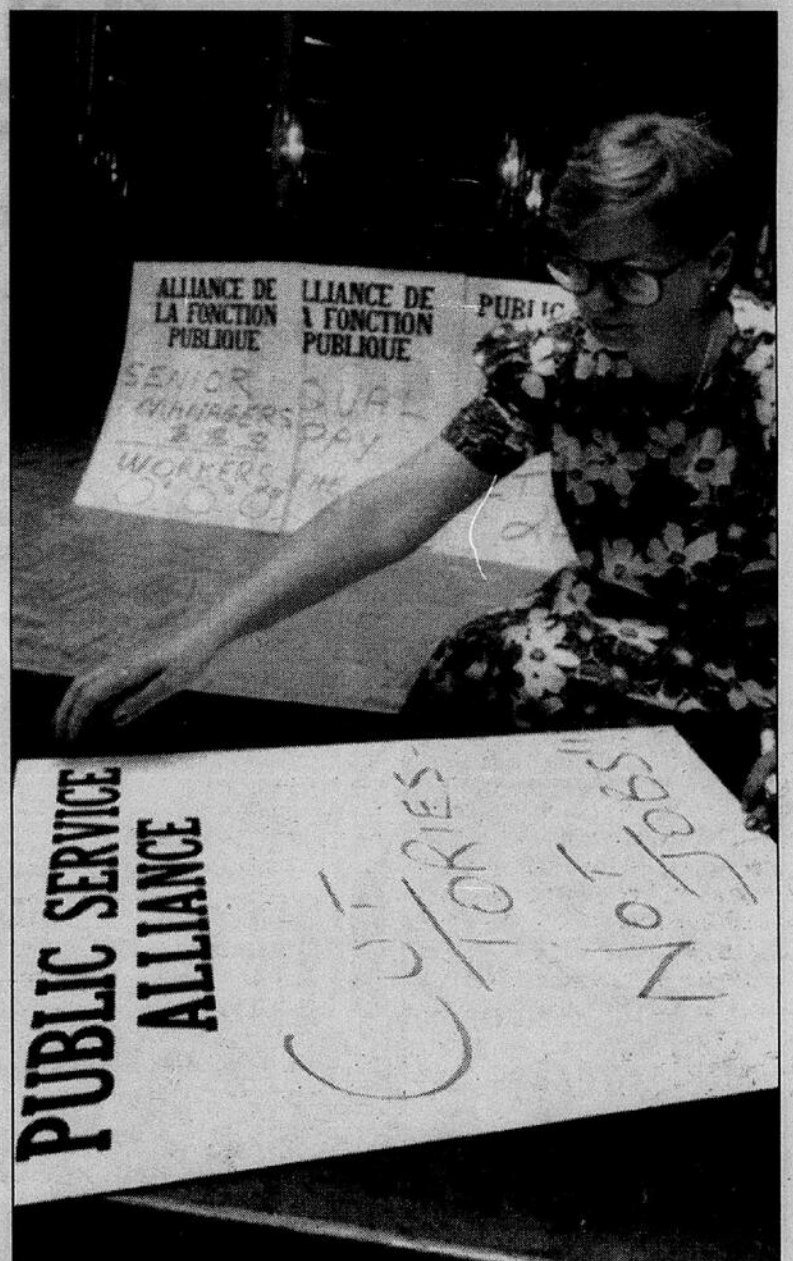 ALLIANCE DE
LA FONCTION
PUBLIQUE
SENIOR
MANAGERS
$ $ $
WORKERS
LLIANCE DE
FONCTION
PUBLIQUE
QUAL
PAY
PUBLIC
PUBLIC SERVICE
ALLIANCE
CUT/TORIES
NOT/JOBS!!